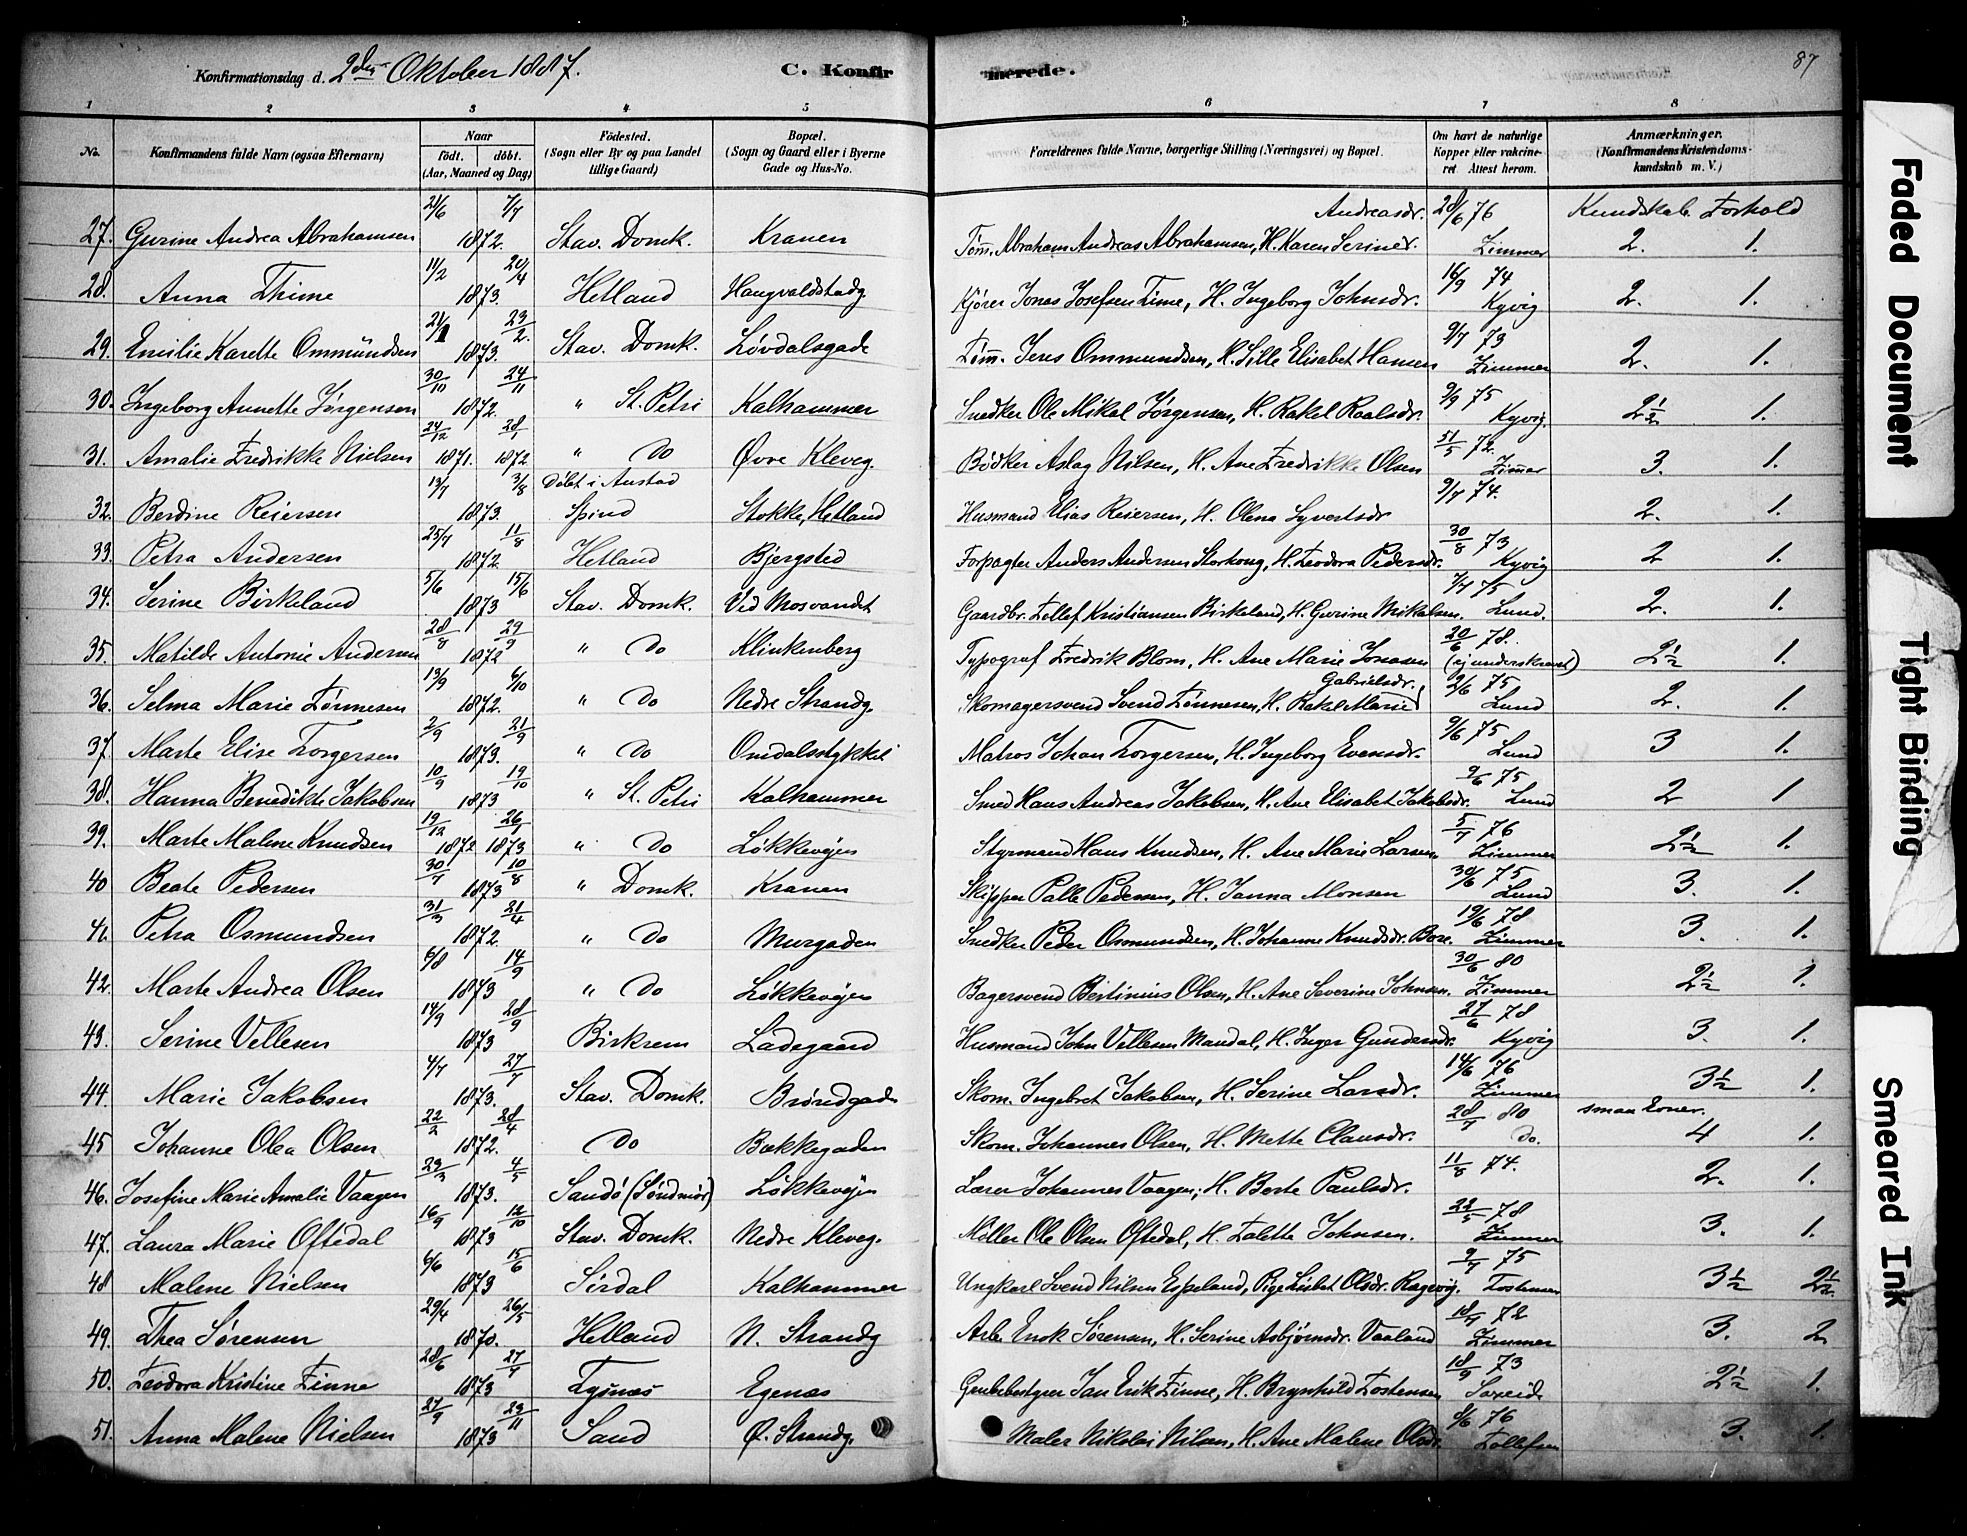 Konfirmationsdag d. 2den Oktober 1887.
C. Konfirmerede.
87
1 2 3 4 5 6 7 8
No.
Konfirmandens fulde Navn (ogsaa Efternavn)
Naar
födt. döbt.
(Aar, Maaned og Dag)
Födested.
(Sogn eller By og paa Landet tillige Gaard)
Bopæl.
(Sogn og Gaard eller i Byerne Gade og Hus-No.
Forældrenes fulde Navne, borgerlige Stilling (Næringsvei) og Bopæl.
Om havt de naturlige Kopper eller vakcineret. Attest herom.
Anmærkninger.
(Konfirmandens Kristendomskundskab m. V.)
Kundskab. Forhold
27. Gurine Andrea Abrahamsen 21/6 1872. 7/7 Stav. Domk. Kranen Töm. Abraham Andreas Abrahamsen, H. Karen Serine Andreasdr. 28/6 76 Zimmer 2. 1.
28. Anna Thime 11/2 1873. 20/4 Hetland Haugvaldstadg Kjører Jonas Josefsen Time, H. Ingeborg Johnsdr. 16/9 74 Kyvig 2. 1.
29. Emilie Karette Ommundsen 21/1 1873. 23/2 Stav. Domk. Løvdalsgade Tøm. Jens Ommundsen, H. Sille Elisabet Hansen 9/7 73 Zimmer 2. 1.
30. Ingeborg Annette Jørgensen 30/10 1872. 24/11 " St. Petri Kalhammer Snedker Ole Mikal Jørgensen, H. Rakel Roalsdr. 9/9 75 Kyvig. 2½ 1.
31. Amalie Fredrikke Nielsen 24/12 1871. 28/1 1872 " Do Øvre Kleveg. Bødker Aslag Nilsen, H. Ane Fredrikke Olsen 72. Zimmer 3. 1.
32. Berdine Reiersen 13/7 1873. 3/8 Døbt i Austad Spind Stokke, Hetland Husmand Elias Reiersen, H. Olena Syvertsdr 9/7 74. 2. 1.
33. Petra Andersen 25/7 1872. 11/8 Hetland Bjergsted Forpagter Anders Andersen Storhoug, H. Teodora Pedersdr. 30/8 73 Kyvig 2 1.
34. Serine Birkeland 5/6 1873 15/6 Stav. Domk. Ved Mosvandet Gaardbr. Tellef Kristiansen Birkeland, H. Gurine Mikalsen. 7/7 75 Lund. 2. 1.
35. Matilde Antonie Andersen 28/8 1872 29/9 " Do Klinkenberg Typograf Fredrik Blom, H. Ane Marie Jonasen 20/6 78. (ej underskrevet) 2½ 1.
36. Selma Marie Tønnesen 13/9 1872. 6/10 " Do Nedre Strandg. Skomagersvend Svend Tønnesen, H. Rakel Marie Gabrielsdr. 2/6 75 Lund 2. 1.
37. Marte Elise Torgersen 2/9 1873. 21/9 " Do Omdalsstykket Matros Johan Torgersen, H. Ingeborg Evensdr. 9/6 75 Lund 3 1.
38. Hanna Benedikte Jakobsen 10/9 1873 19/10 " St. Petri Kalhammer Smed Hans Andreas Jakobsen, H. Ane Elisabet Jakobsdr. 9/6 75 Lund 2 1
39. Marte Malene Knudsen 19/12 1872 26/1 1873 " Do Løkkevejen Styrmand Hans Knudsen, H. Ane Marie Larsen. 5/7 76 Zimmer 2½ 1.
40 Beate Pedersen 30/7 1873 10/8 " Domk. Kranen Skipper Palle Pedersen, H. Janna Monsen 30/6 75 Lund 3. 1.
41. Petra Osmundsen 31/3 1872. 21/4 " Do Murgaden Snedker Peder Osmundsen, H. Johanne Knudsdr. Bore. 19/6 78 Zimmer 3. 1.
42. Marte Andrea Olsen 6/8 1873 14/9 " Do Løkkevejen Bagersvend Bertinius Olsen, H. Ane Severine Johnsen. 30/6 80 Zimmer 2½ 1.
43. Serine Vellesen 14/9 1873 28/9 Birkrem Ladegaard Husmand John Vellesen Mandal, H. Inger Gundersdr. 27/6 78 Kyvig 3. 1.
44. Marie Jakobsen 4/7 1873. 27/7 Stav. Domk. Brøndgaden Skom. Ingebret Jakobsen, H. Serine Larsdr. 14/6 76 Zimmer 3½ 1.
45 Johanne Olea Olsen 22/2 1872. 28/4 Do Bakkegaden Skom. Johannes Olsen, H. Mette Clausdr. 28/7 80 Do. smaa Evner. 4 1.
46. Josefine Marie Amalie Vaagen 23/3 1873. 4/5 Sandö (Söndmör) Løkkevejen Lærer Johannes Vaagen, H. Berte Paulsdr. 11/8 74. 2. 1.
47. Laura Marie Oftedal 16/9 1873 12/10 Stav. Domk. Nedre Kleveg. Møller Ole Olsen Oftedal, H. Talette Johnsen. 22/5 78 Zimmer 3. 1.
48 Malene Nielsen 6/6 1873 15/6 Sirdal Kalhammer Ungkarl Svend Nilsen Espeland, Pige Lisbet Olsdr. Ragevig. 9/7 75 Tostensen 3½ 2½
49. Thea Sørensen 29/4 1870. 26/5 Hetland N. Strandg Arb. Enok Sørensen, H. Serine Asbjørnsdr. Vaaland 72 Zimmer 3. 2
50. Teodora Kristine Finne 28/6 1873 27/7 Tysnæs Egenæs Grubebestyrer Jan Erik Finne, H. Brynhild Tostensen 18/9 73 2½ 1.
51. Anna Malene Nielsen 27/9 1873 23/11 Sand Ø. Strandg. Maler Nikolai Nilsen, H. Ane Malene Olsdr. 8/6 76 Tollefsen 3. 1.
Faded Document
Tight Binding
Smeared Ink